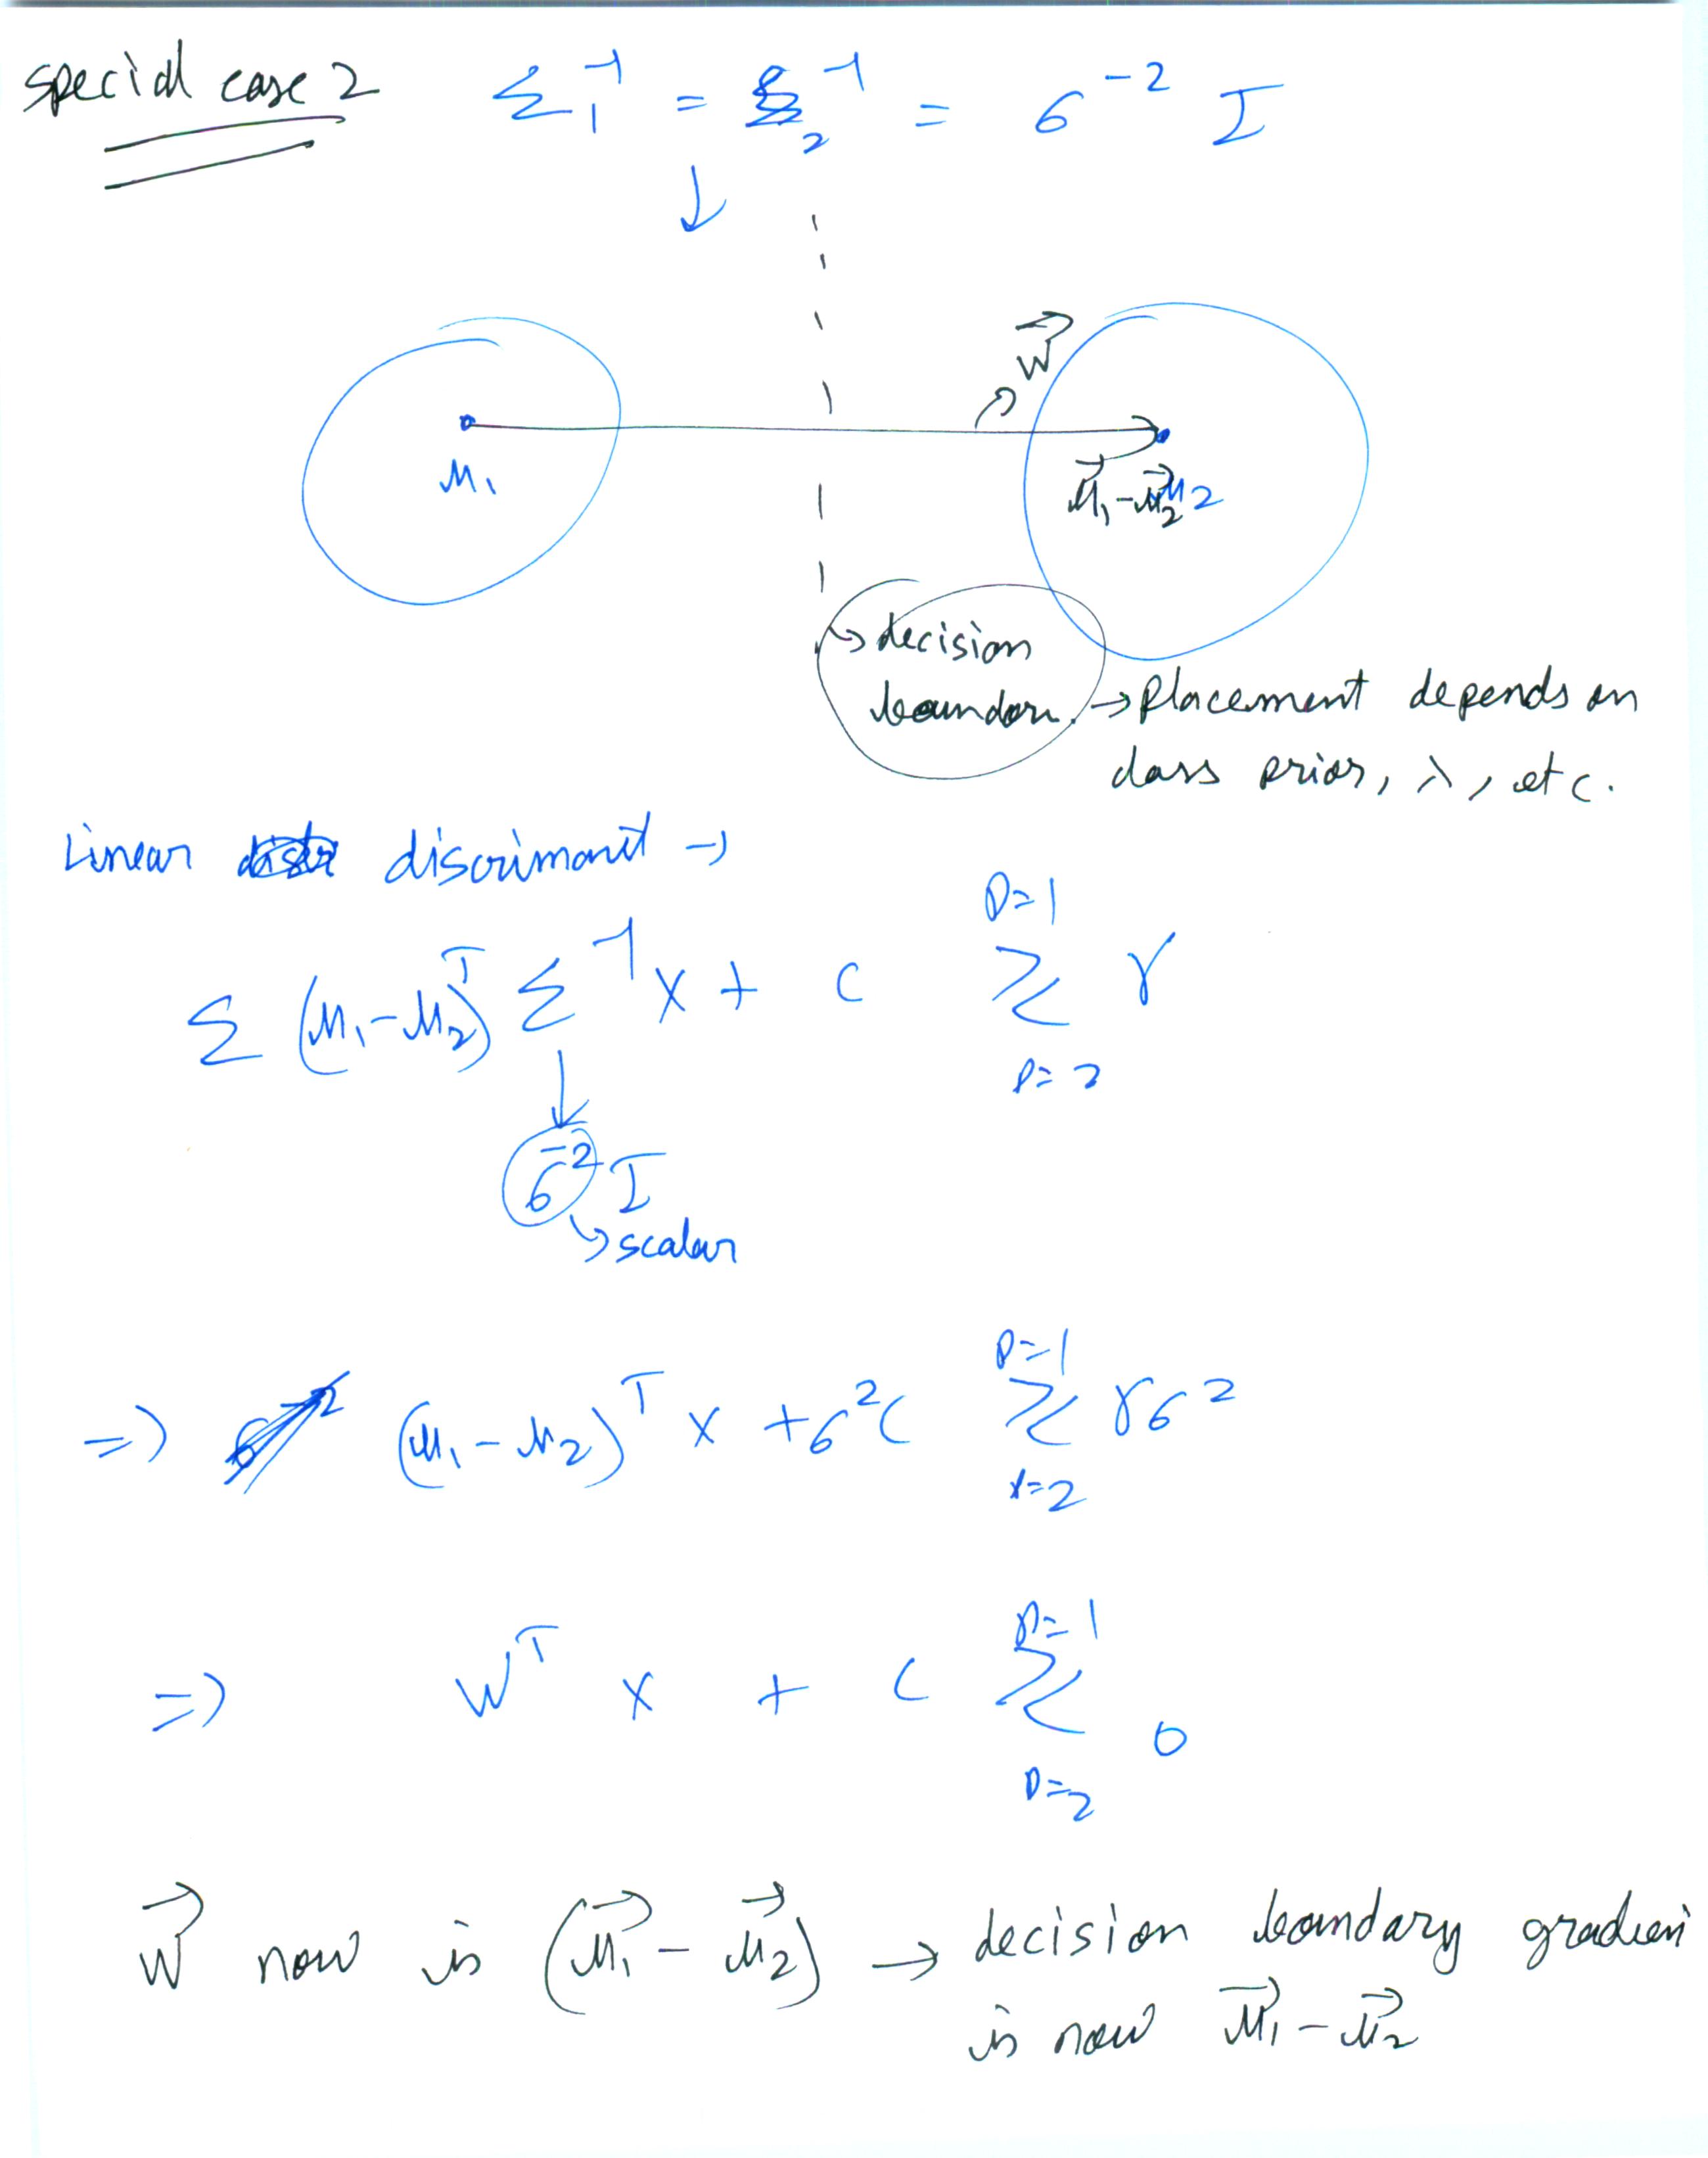 special case 2 Σ₁⁻¹ = Σ₂⁻¹ = σ⁻² I
↓
w⃗
μ₁
μ⃗₁-μ⃗₂ μ2
↳ decision
boundary → Placement depends on
class prior, λ, etc.
Linear discrimanit →
D=1
Σ (μ₁-μ₂)ᵀ Σ⁻¹ x + c ≷ γ
D=2
↓
σ⁻² I
↳ scalar
D=1
⇒ (μ₁-μ₂)ᵀ x + σ²c ≷ γσ²
γ=2
D=1
⇒ Wᵀ x + c ≷ 0
D=2
w⃗ now is (μ⃗₁ - μ⃗₂) → decision boundary gradien
is now μ⃗₁-μ⃗₂